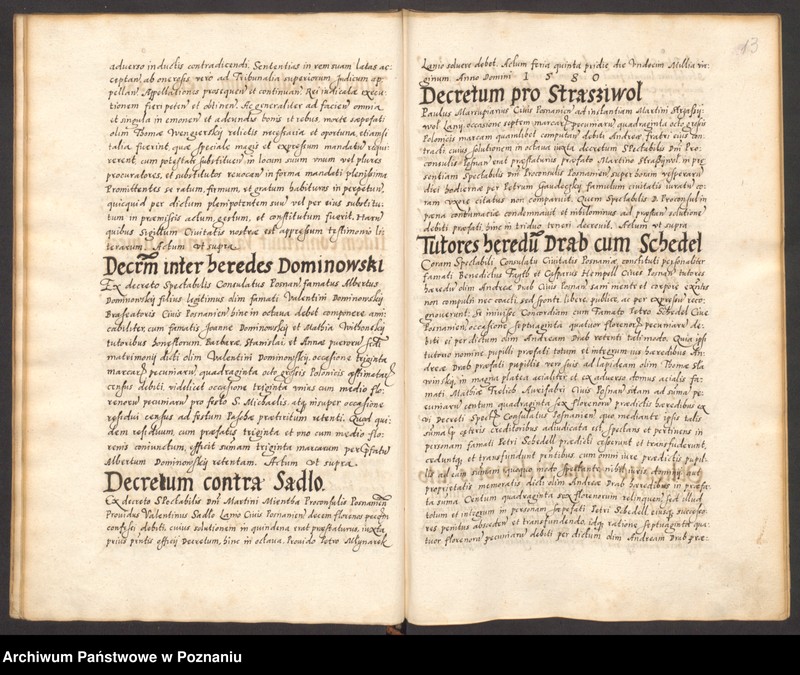 adverso inductis contradicendi. Sententias in rem suam latas ac-
ceptan, ab onerosis vero ad Tribunalia superiorum Iudicum ap-
pellan, Appellationis prosequen et continuan, Rei iudicatæ execu-
tionem fieri peten et obtinen. Ac generaliter ad facien omnia
et singula in emonen et adeundis bonis et rebus, morte sæpefati
olim Thomæ Wengierski relictis necessaria et oportuna, etiamsi
talia fuerint, quæ speciale magis et expressum mandatum requi-
rerent, cum potestate substituen in locum suum vnum vel plures
procuratores, et substitutos reuocen in forma mandati plenissima
Promittentes se ratum, firmum, et gratum habituros in perpetuum,
quicquid per dictum plenipotentem suum vel per eius substitu-
tum in præmissis actum, gestum, et constitutum fuerit. Harum
quibus Sigillum Ciuitatis nostræ est appressum testimonio li-
terarum. Actum vt supra
Decrm inter heredes Dominowski
Ex decreto Spectabilis Consulatus Posnan famatus Albertus
Dominowskij filius legitimus olim famati Valentini Dominowskij
Braseatoris Ciuis Posnanien hinc in octaua debet componere ami-
cabiliter cum famatis Joanne Dominowskij et Mathia Witkowskij
tutoribus honestorum Barbaræ Stanislai et Annæ puerorum scdi
matrimonij dicti olim Valentini Dominowskij, occasione triginta
marcarum pecuniarum, quadraginta octo grossis Polonicis æstimatarum
census debiti, videlicet occasione triginta vnius cum medio flo-
renorum pecuniarum pro festo S. Michaelis, atque insuper occasione
residui census ad festum Paschæ præteritum retenti. Quod qui-
dem residuum, cum præfatis triginta et vno cum medio flo-
renis coniunctum, efficit summam triginta marcarum per præfatum
Albertum Dominowskij retentam. Actum vt supra
Decretum contra Sadlo.
Ex decreto Spectabilis Dni Martini Mientha Proconsulis Posnanien
Prouidus Valentinus Sadlo Lanio Ciuis Posnanien decem florenos pecunm
confessi debiti, cuius solutionem in quindena erat præstaturus, iuxta
prius prntis officij Decretum, hinc in octaua, Prouido Petro Mlynarek
13
Lanio soluere debet. Actum feria quinta pridie die Vndecim Millia vir-
ginum Anno Domini 1580
Decretum pro Strasziwol
Paulus Marsupiarius Ciuis Posnanien ad instantiam Martini Straszy-
wol Lanij occasione septem marcarum pecuniarum quadraginta octo grossis
Polonicis marcam quamlibet computando debiti Andreæ fratri eius con-
tracti cuius solutionem in octaua iuxta decretum Spectabilis Dni Pro-
consulis Posnan erat præstaturus præfato Martino Straszywol in præ-
sentiam Spectabilis Dni Proconsulis Posnanien super horam vesperarum
diei hodiernæ per Petrum famulum ciuitatis iuratum co-
ram citatus non comparuit. Quem Spectabilis D. Proconsul in
pœna contumaciæ condemnauit et nihilominus ad præstan solutionem
debiti præfati hinc in triduo teneri decreuit. Actum vt supra
Tutores heredũ Drab cum Schedel
Coram Spectabili Consulatu Ciuitatis Posnaniæ constituti personaliter
famati Benedictus et Casparus Hempell Ciues Posnan tutores
hæredum olim Andreæ Drab Ciuis Posnan sani mente et corpore existen
non compulsi nec coacti sed sponte libere publice, ac per expressum reco-
gnouerunt: Se iniuisse Concordiam cum Famato Petro Schedel Ciue
Posnanien, occasione septuaginta quatuor florenorum pecuniarum de-
biti ei per dictum olim Andream Drab retenti tali modo. Quia ipsi
tutorio nomine pupilli præfati totum et integrum ius hæredibus An-
dreæ Drab præfati pupillis
in magna platea acialiter et ex aduerso domus acialis fa-
mati Mathiæ Aurifabri Ciuis Posnan sitam ad summam pe-
cuniarum centum quadraginta sex florenorum prædictis hæredibus ex
vi Decreti Spectbilis Consulatus Posnanien quæ mediante ipsis talis
summa ceteris creditoribus adiudicata est spectans et pertinens in
personam famati Petri Schedell prædicti cesserunt et transfuderunt,
ceduntque, et transfundunt penitus cum omni iure prædictis pupil-
lis ad eam summam quouis modo spectante nihil iuris, dominij aut
proprietatis memoratis dicti olim Andreæ Drab hæredibus in præfa-
ta summa Centum quadraginta sex florenorum relinquen, sed illud
totum et integrum in personam sæpefati Petri Schedell eiusque successo-
res penitus abscedendo et transfundendo, idque ratione septuaginta qua-
tuor florenorum pecuniarum debiti per dictum olim Andream Drab præ-
Archiwum Państwowe w Poznaniu